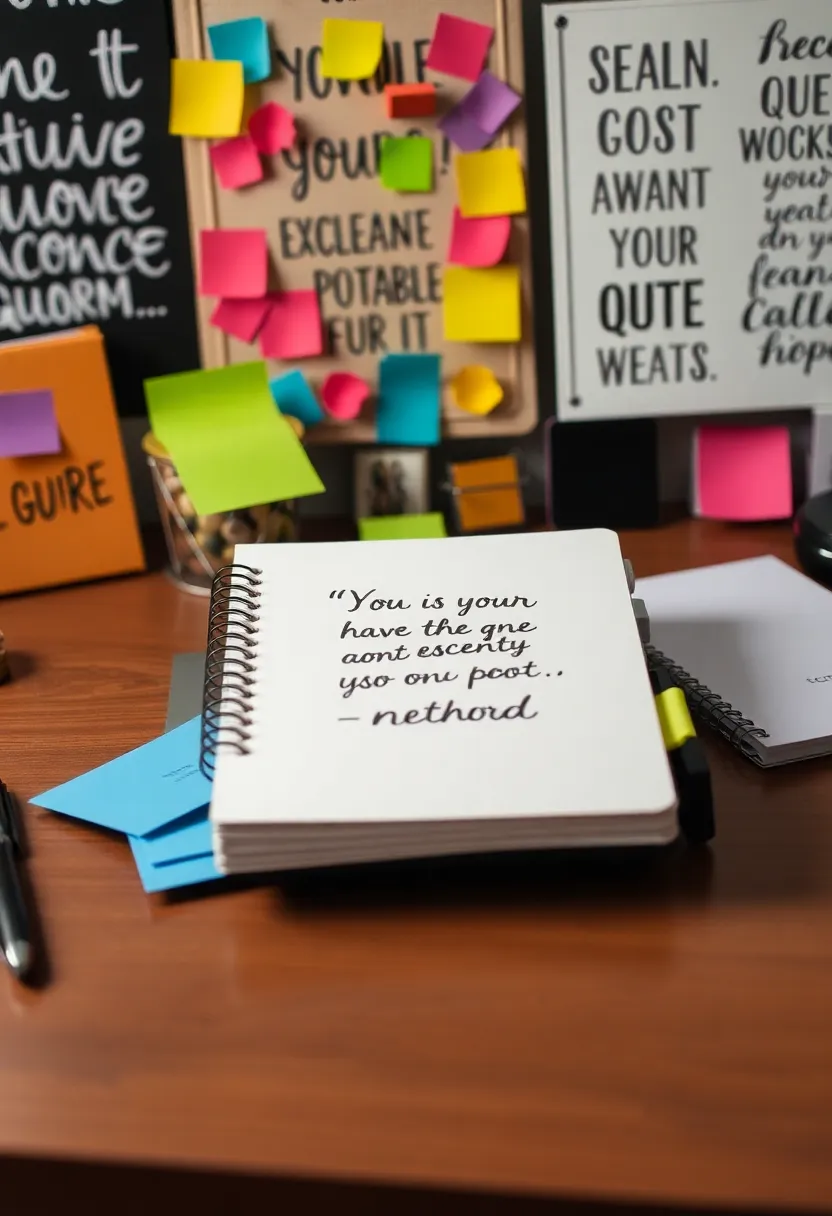 me tt
tuive
uore
conce
guorm...
YOU
your !
EXCLEANE
POTABLE
FUR IT
SEALN.
GOST
AWANT
YOUR
QUTE
WEATS.
Rece
QUE
WOCKS
your
yeat
dn yo
feann
Calle
hope
L GUIRE
"You is your
have the qne
aont escenty
yso onu pcot..
– nethord